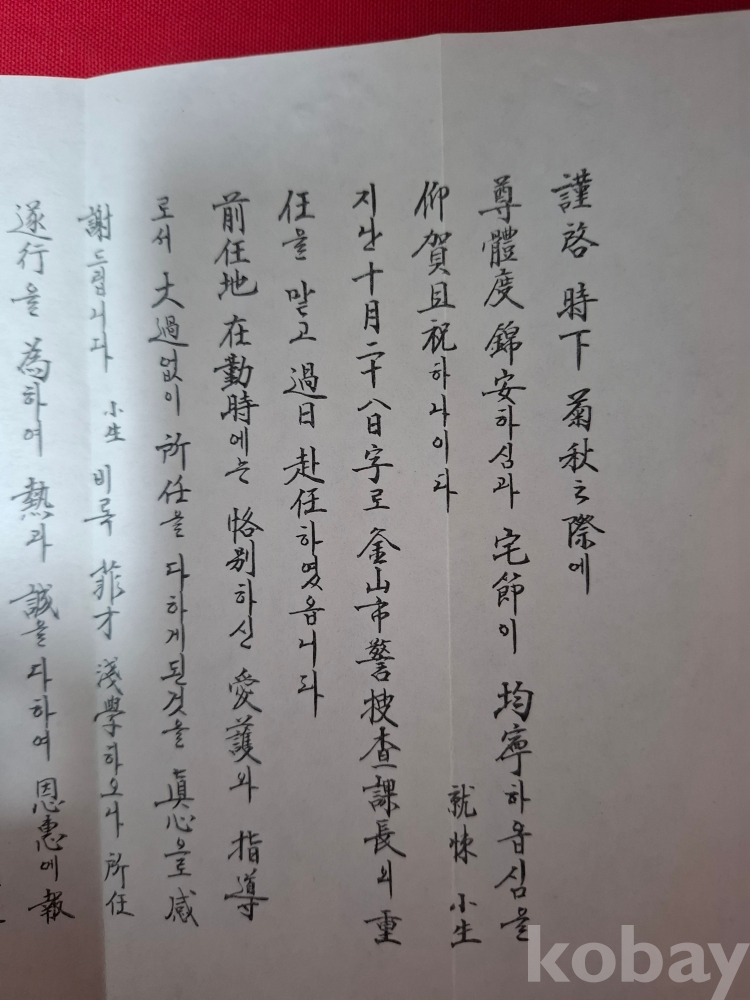 謹啓 時下 菊秋之際에
尊體度 錦安하심과 宅節이 均寧하옵심을
仰賀且祝하나이다 就悚 小生
지난 十月 二十八日字로 釜山市警 搜査課長의 重
任을 맡고 過日 赴任하였읍니다
前任地 在勤時에는 恪別하신 愛護와 指導
로서 大過없이 所任을 다하게된것을 眞心으로 感
謝드립니다 小生 비록 菲才淺學하오나 所任
遂行을 為하여 熱과 誠을 다하여 恩惠에 報
kobay